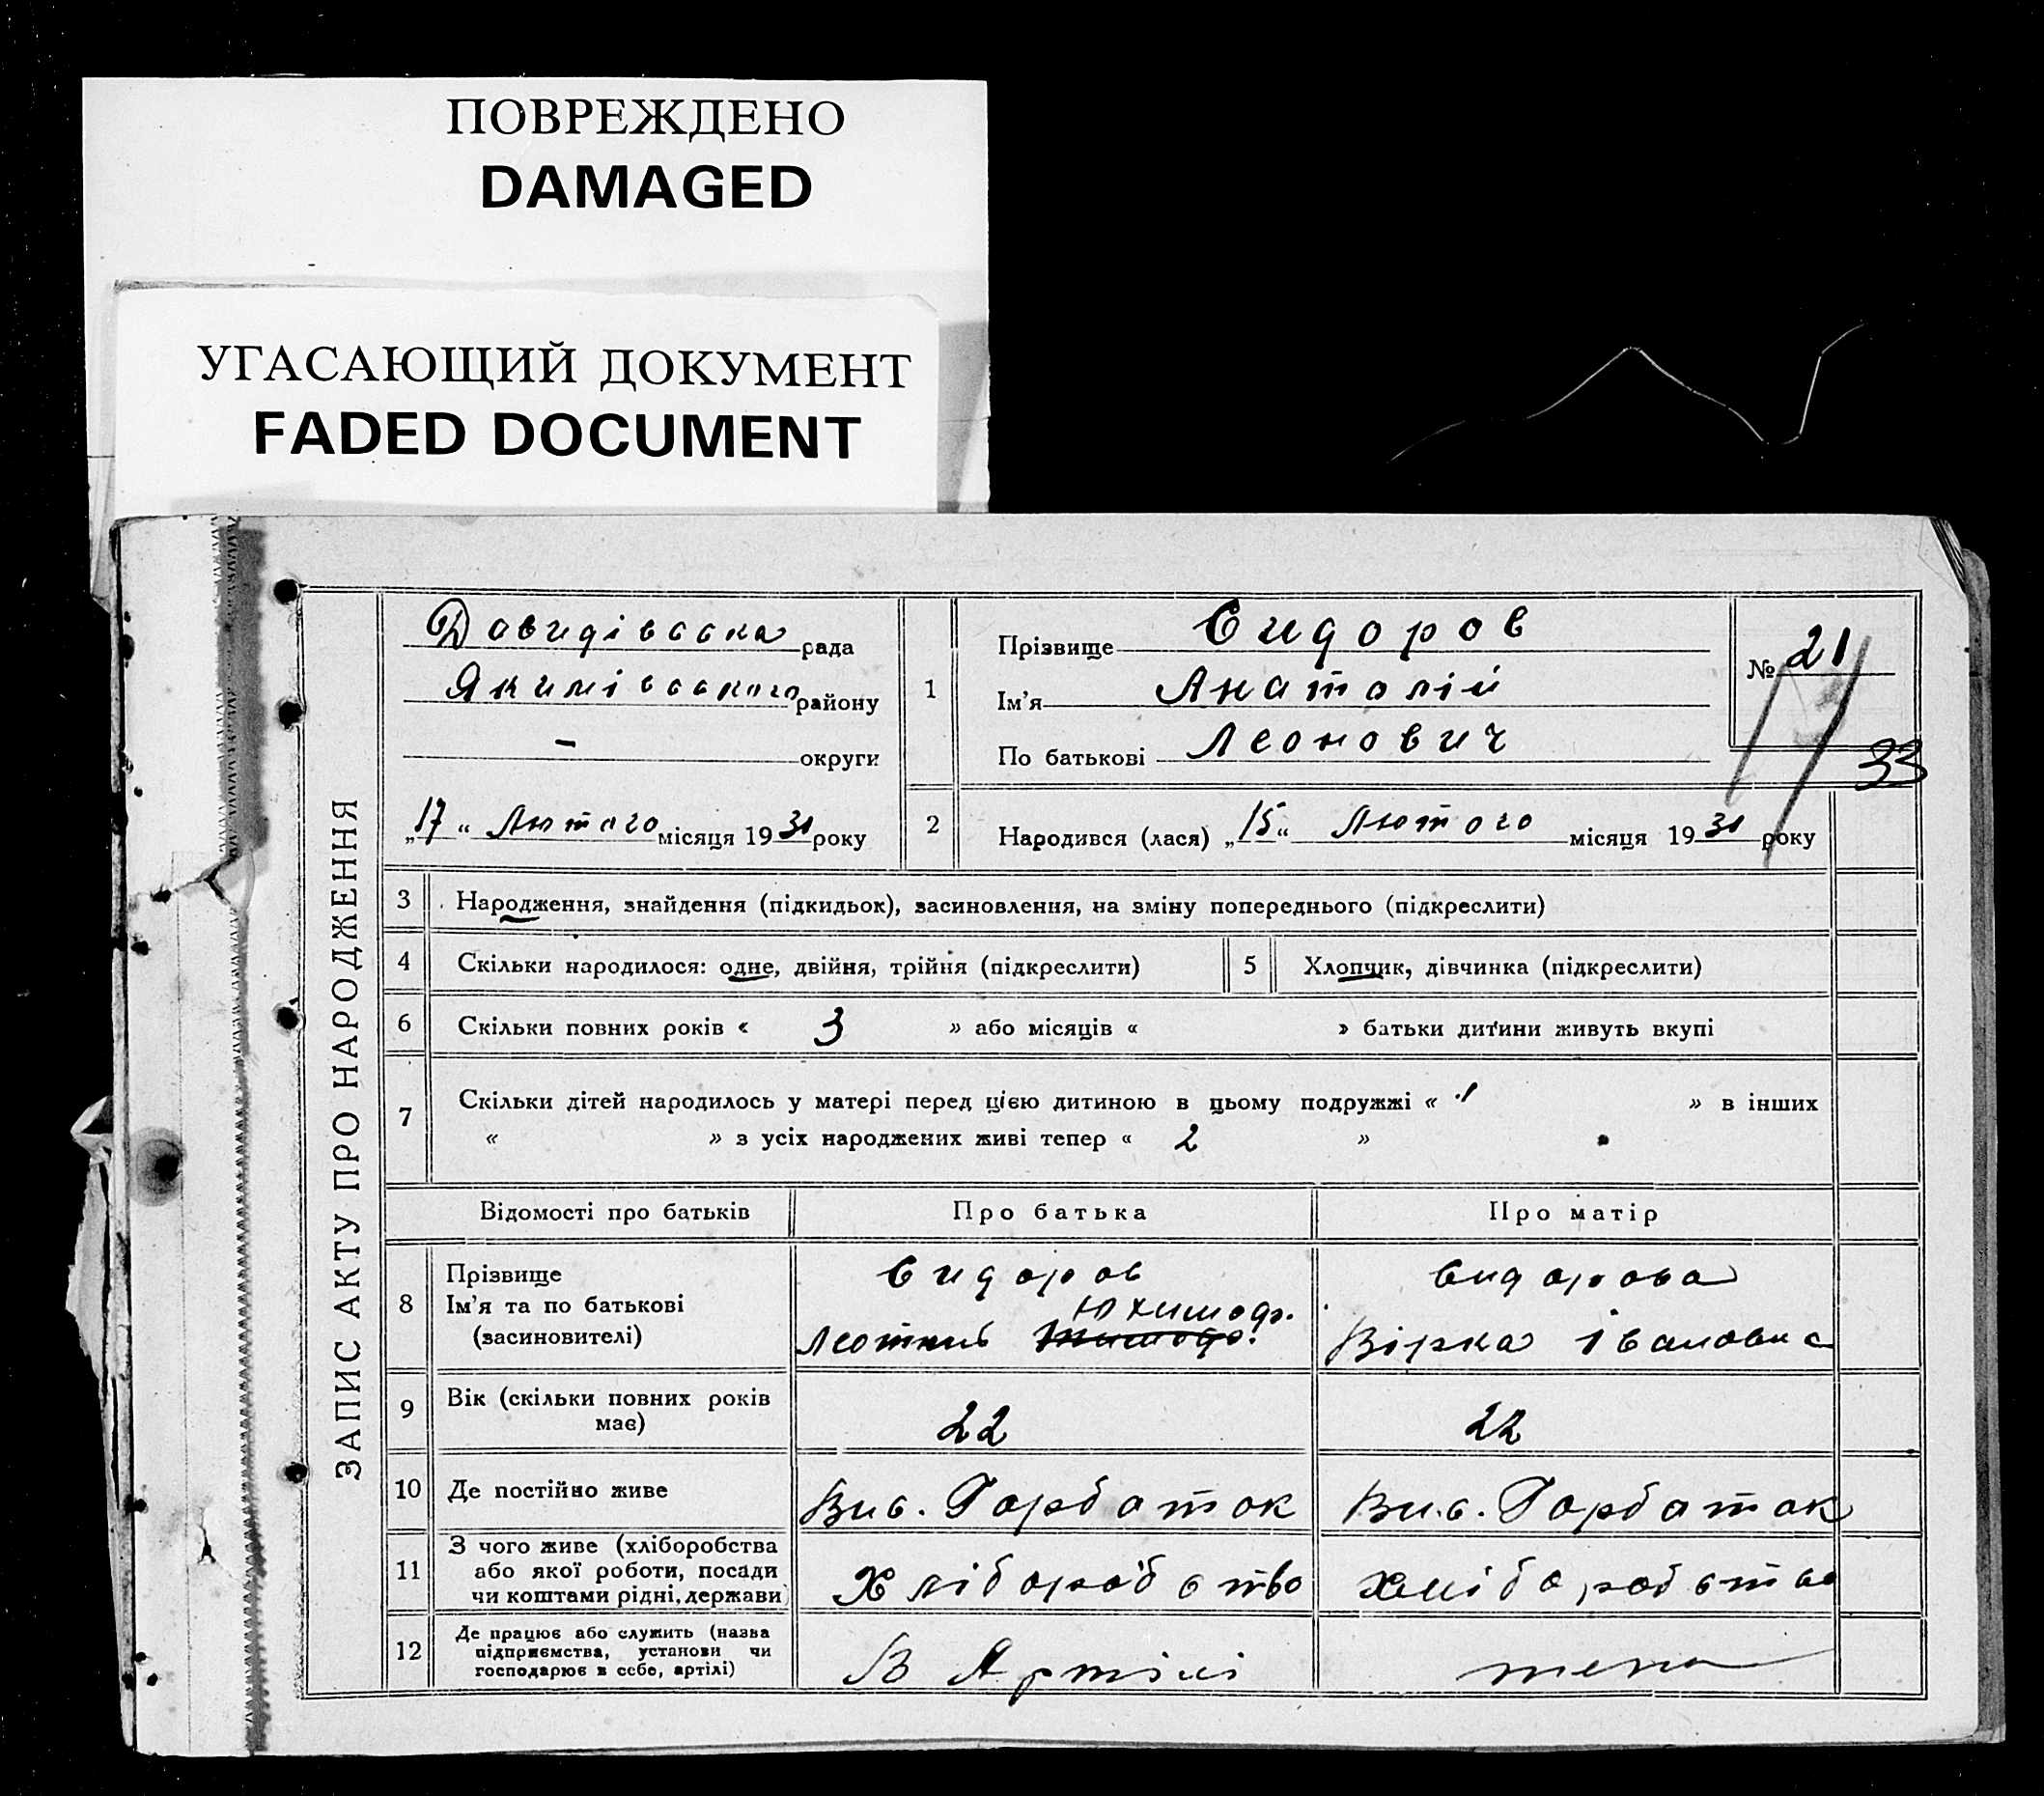 ПОВРЕЖДЕНО
DAMAGED
УГАСАЮЩИЙ ДОКУМЕНТ
FADED DOCUMENT
ЗАПИС АКТУ ПРО НАРОДЖЕННЯ
Давидівська рада
Якимівського району
- округи
„17“ Лютого місяця 1931 року
1
Прізвище Сидоров
Ім'я Анатолій
По батькові Леонович
№ 21
33
2
Народився (лася) „15“ Лютого місяця 1931 року
3 Народження, знайдення (підкидьок), засиновлення, на зміну попереднього (підкреслити)
4 Скільки народилося: одне, двійня, трійня (підкреслити) 5 Хлопчик, дівчинка (підкреслити)
6 Скільки повних років « 3 » або місяців « » батьки дитини живуть вкупі
7 Скільки дітей народилось у матері перед цією дитиною в цьому подружжі « 1 » в інших
« » з усіх народжених живі тепер « 2 »
Відомості про батьків Про батька Про матір
8 Прізвище Сидоров Сидорова
Ім'я та по батькові Юхимодг.
(засиновителі) Вірка Івановна
9 Вік (скільки повних років 22 22
має)
10 Де постійно живе Вис. Горбаток Вис. Горбаток
11 З чого живе (хліборобства
або якої роботи, посади Хліборобство хліборобство
чи коштами рідні, держави)
12 Де працює або служить (назва
підприємства, установи чи В Артілі тепа
господарює в себе, артілі)